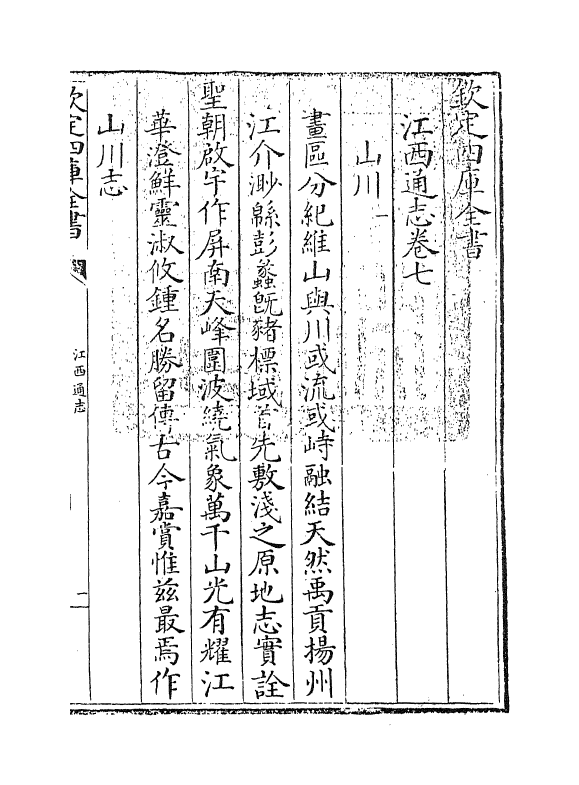 欽定四庫全書
江西通志卷七
山川一
畫區分紀維山與川或流或峙融結天然禹貢揚州
江介渺緜彭蠡既豬標域首先敷淺之原地志實詮
聖朝啟宇作屏南天峰圍波繞氣象萬千山光有耀江
華澄鮮靈淑攸鍾名勝留傳古今嘉賞惟兹最焉作
山川志
欽定四庫全書
江西通志